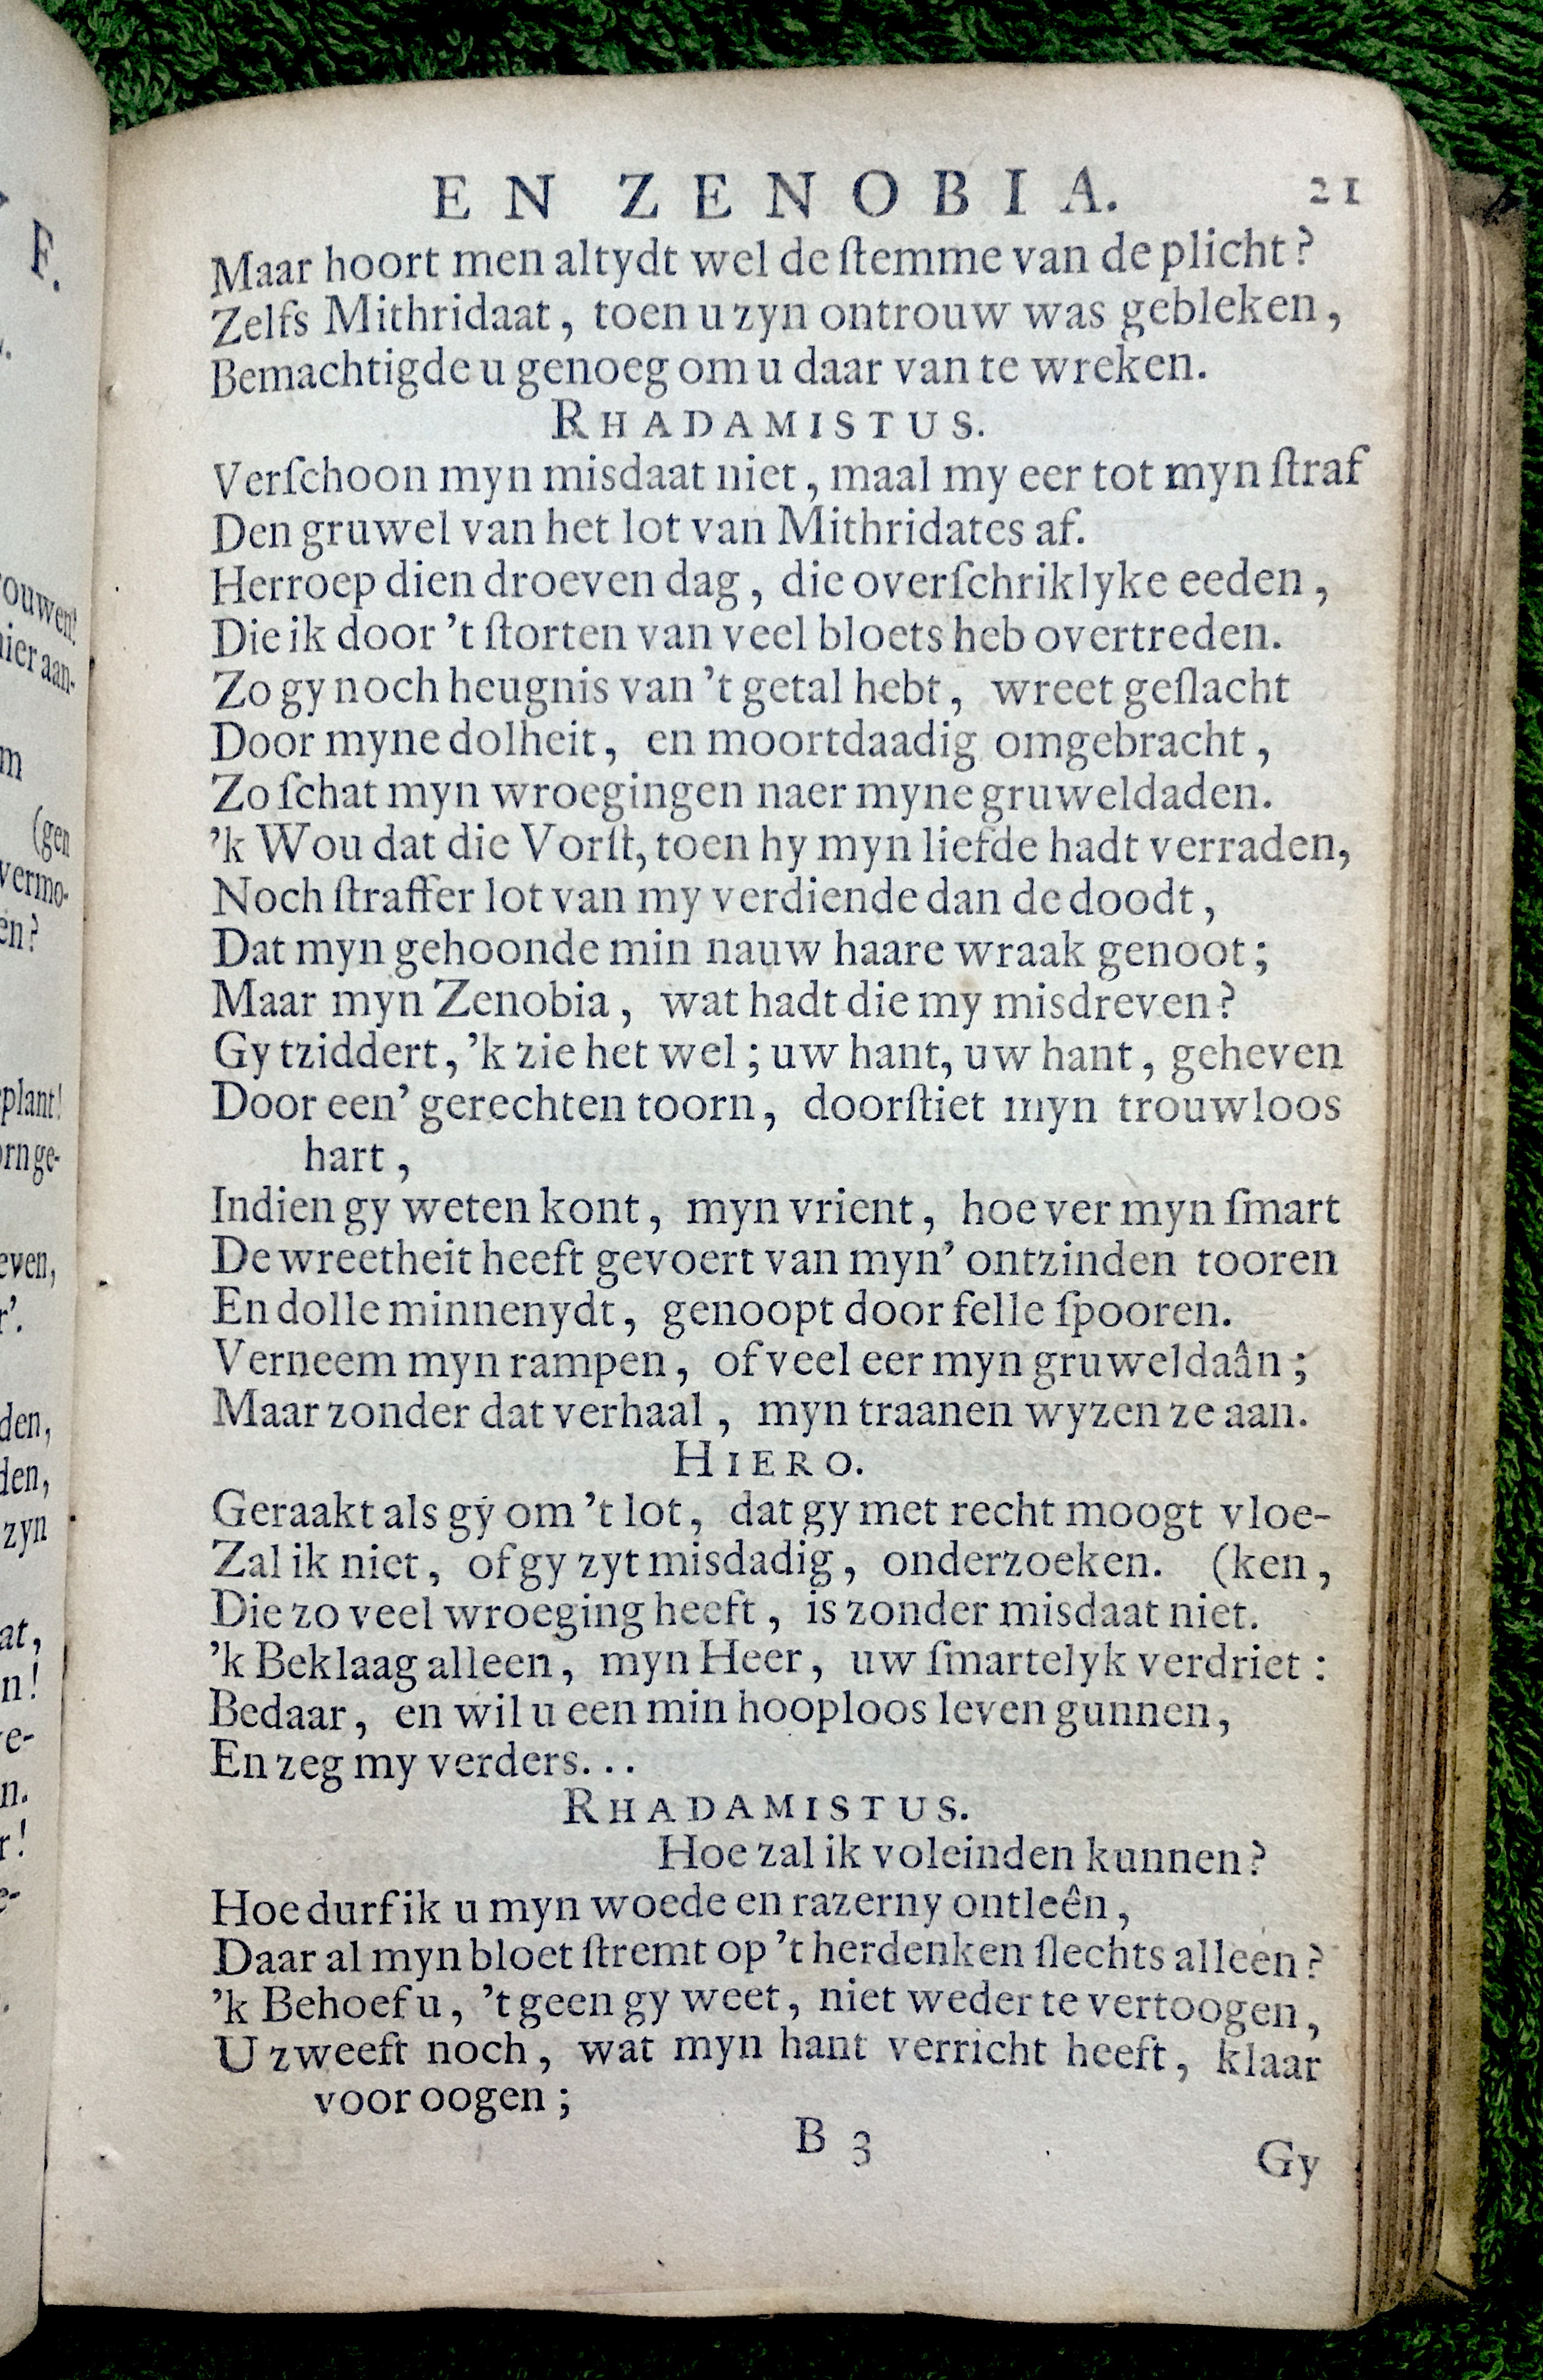 EN ZENOBIA. 21
Maar hoort men altydt wel de ſtemme van de plicht?
Zelfs Mithridaat, toen u zyn ontrouw was gebleken,
Bemachtigde u genoeg om u daar van te wreken.
RHADAMISTUS.
Verſchoon myn misdaat niet, maal my eer tot myn ſtraf
Den gruwel van het lot van Mithridates af.
Herroep dien droeven dag, die overſchriklyke eeden,
Die ik door 't ſtorten van veel bloets heb overtreden.
Zo gy noch heugnis van 't getal hebt, wreet geſlacht
Door myne dolheit, en moortdaadig omgebracht,
Zo ſchat myn wroegingen naer myne gruweldaden.
'k Wou dat die Vorſt, toen hy myn liefde hadt verraden,
Noch ſtraffer lot van my verdiende dan de doodt,
Dat myn gehoonde min nauw haare wraak genoot;
Maar myn Zenobia, wat hadt die my misdreven?
Gy tziddert, 'k zie het wel; uw hant, uw hant, geheven
Door een' gerechten toorn, doorſtiet myn trouwloos
hart,
Indien gy weten kont, myn vrient, hoe ver myn ſmart
De wreetheit heeft gevoert van myn' ontzinden tooren
En dolle minnenydt, genoopt door felle ſpooren.
Verneem myn rampen, of veel eer myn gruweldaân;
Maar zonder dat verhaal, myn traanen wyzen ze aan.
HIERO.
Geraakt als gy om 't lot, dat gy met recht moogt vloe-
Zal ik niet, of gy zyt misdadig, onderzoeken. (ken,
Die zo veel wroeging heeft, is zonder misdaat niet.
'k Beklaag alleen, myn Heer, uw ſmartelyk verdriet:
Bedaar, en wil u een min hooploos leven gunnen,
En zeg my verders...
RHADAMISTUS.
Hoe zal ik voleinden kunnen?
Hoe durf ik u myn woede en razerny ontleên,
Daar al myn bloet ſtremt op 't herdenken ſlechts alleen?
'k Behoef u, 't geen gy weet, niet weder te vertoogen,
U zweeft noch, wat myn hant verricht heeft, klaar
voor oogen;
B 3 Gy